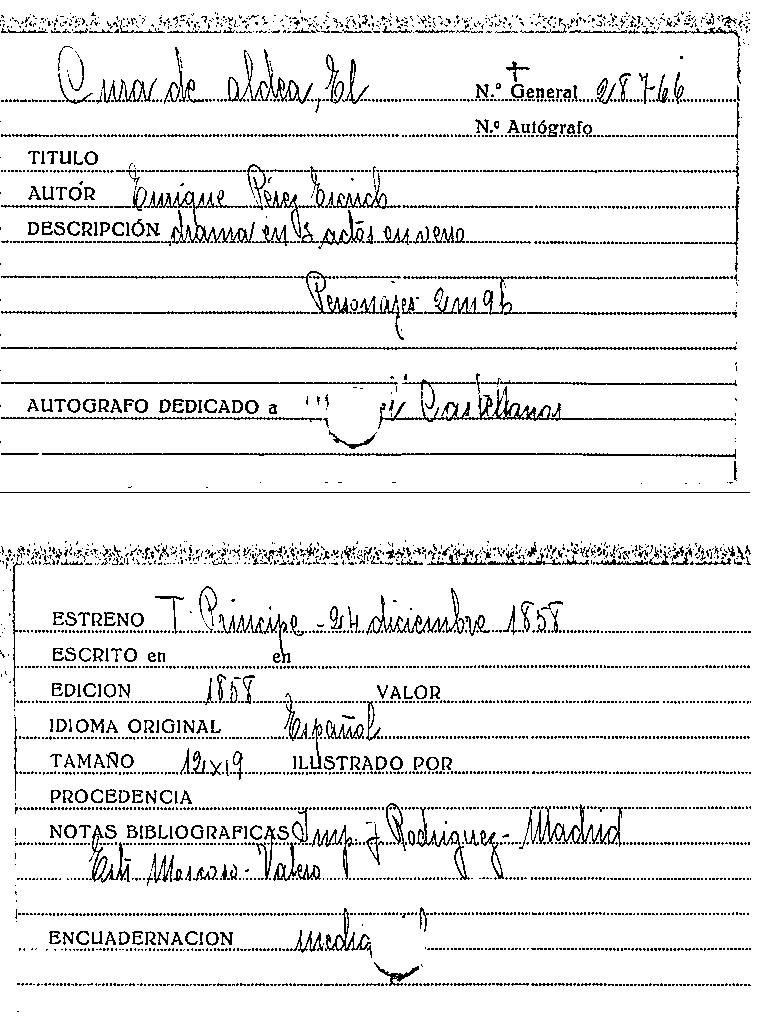 Cura de aldea, El
N.º General 28766
N.º Autógrafo
TITULO
AUTOR Enrique Pérez Escrich
DESCRIPCIÓN drama en 3 actos en verso
Personajes 2m 9h
AUTOGRAFO DEDICADO a Castellanos
ESTRENO T. Principe - 24 diciembre 1858
ESCRITO en en
EDICION 1858 VALOR
IDIOMA ORIGINAL Español
TAMAÑO 12x19 ILUSTRADO POR
PROCEDENCIA
NOTAS BIBLIOGRAFICAS Imp. J Rodriguez - Madrid
Valero
ENCUADERNACION media